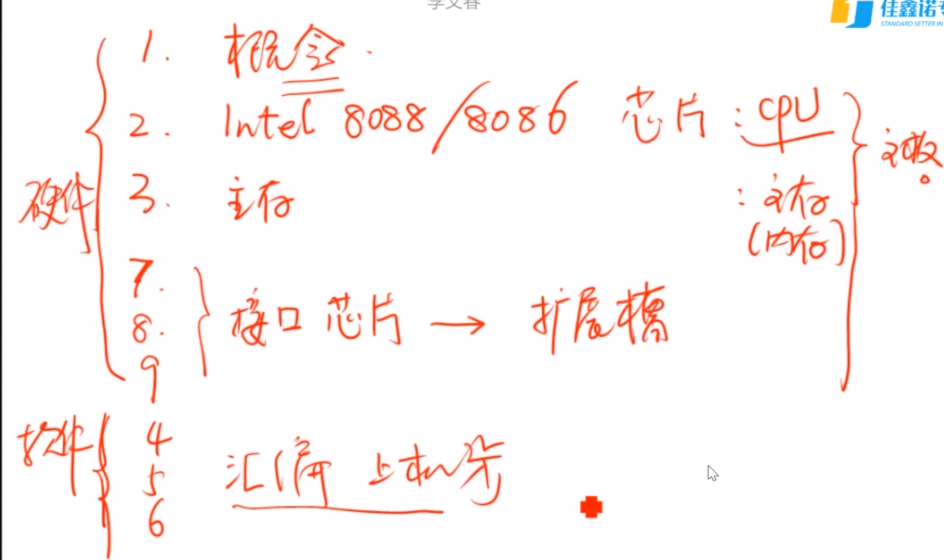 李文春
佳鑫诺专
STANDARD SETTER IN
1. 概念
2. Intel 8088/8086 芯片:CPU
主板
硬件
3. 主存 :主存
(内存)
7.
8. 接口芯片 → 扩展槽
9
软件
4
5 汇编 上机
6